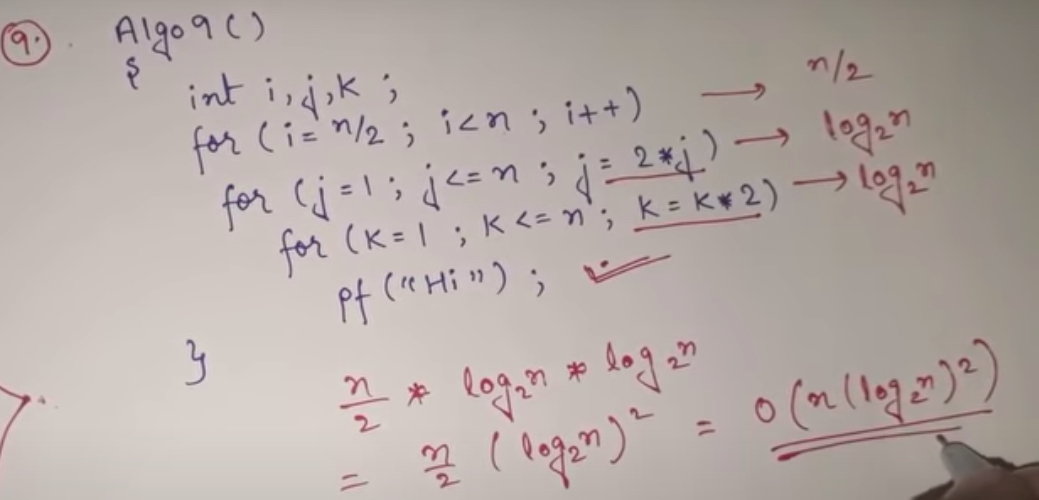 9.
Algo9()
{
int i,j,k ;
for (i= n/2 ; i<n ; i++) → n/2
for (j=1 ; j<=n ; j= 2*j) → log₂n
for (k=1 ; k<=n ; k=k*2) → log₂n
pf ("Hi") ; ✓
}
n/2 * log₂n * log₂n
= n/2 (log₂n)² = O(n(log₂n)²)